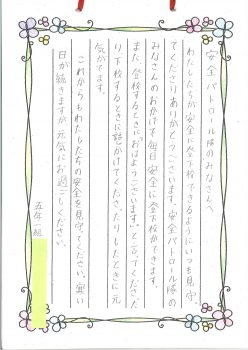 安全パトロール隊のみなさんへ
わたしたちが安全に登下校できるようにいつも見守っ
てくださりありがとうございます。安全パトロール隊の
みなさんのおかげで毎日安全に登下校ができます。
また、登校するときに「おはようございます。」と言ってくださった
り下校するときに話かけてくださったりしたときに元
気がでます。
これからもわたしたちの安全を見守ってください。寒い
日が続きますが元気にお過ごしください。
五年 組